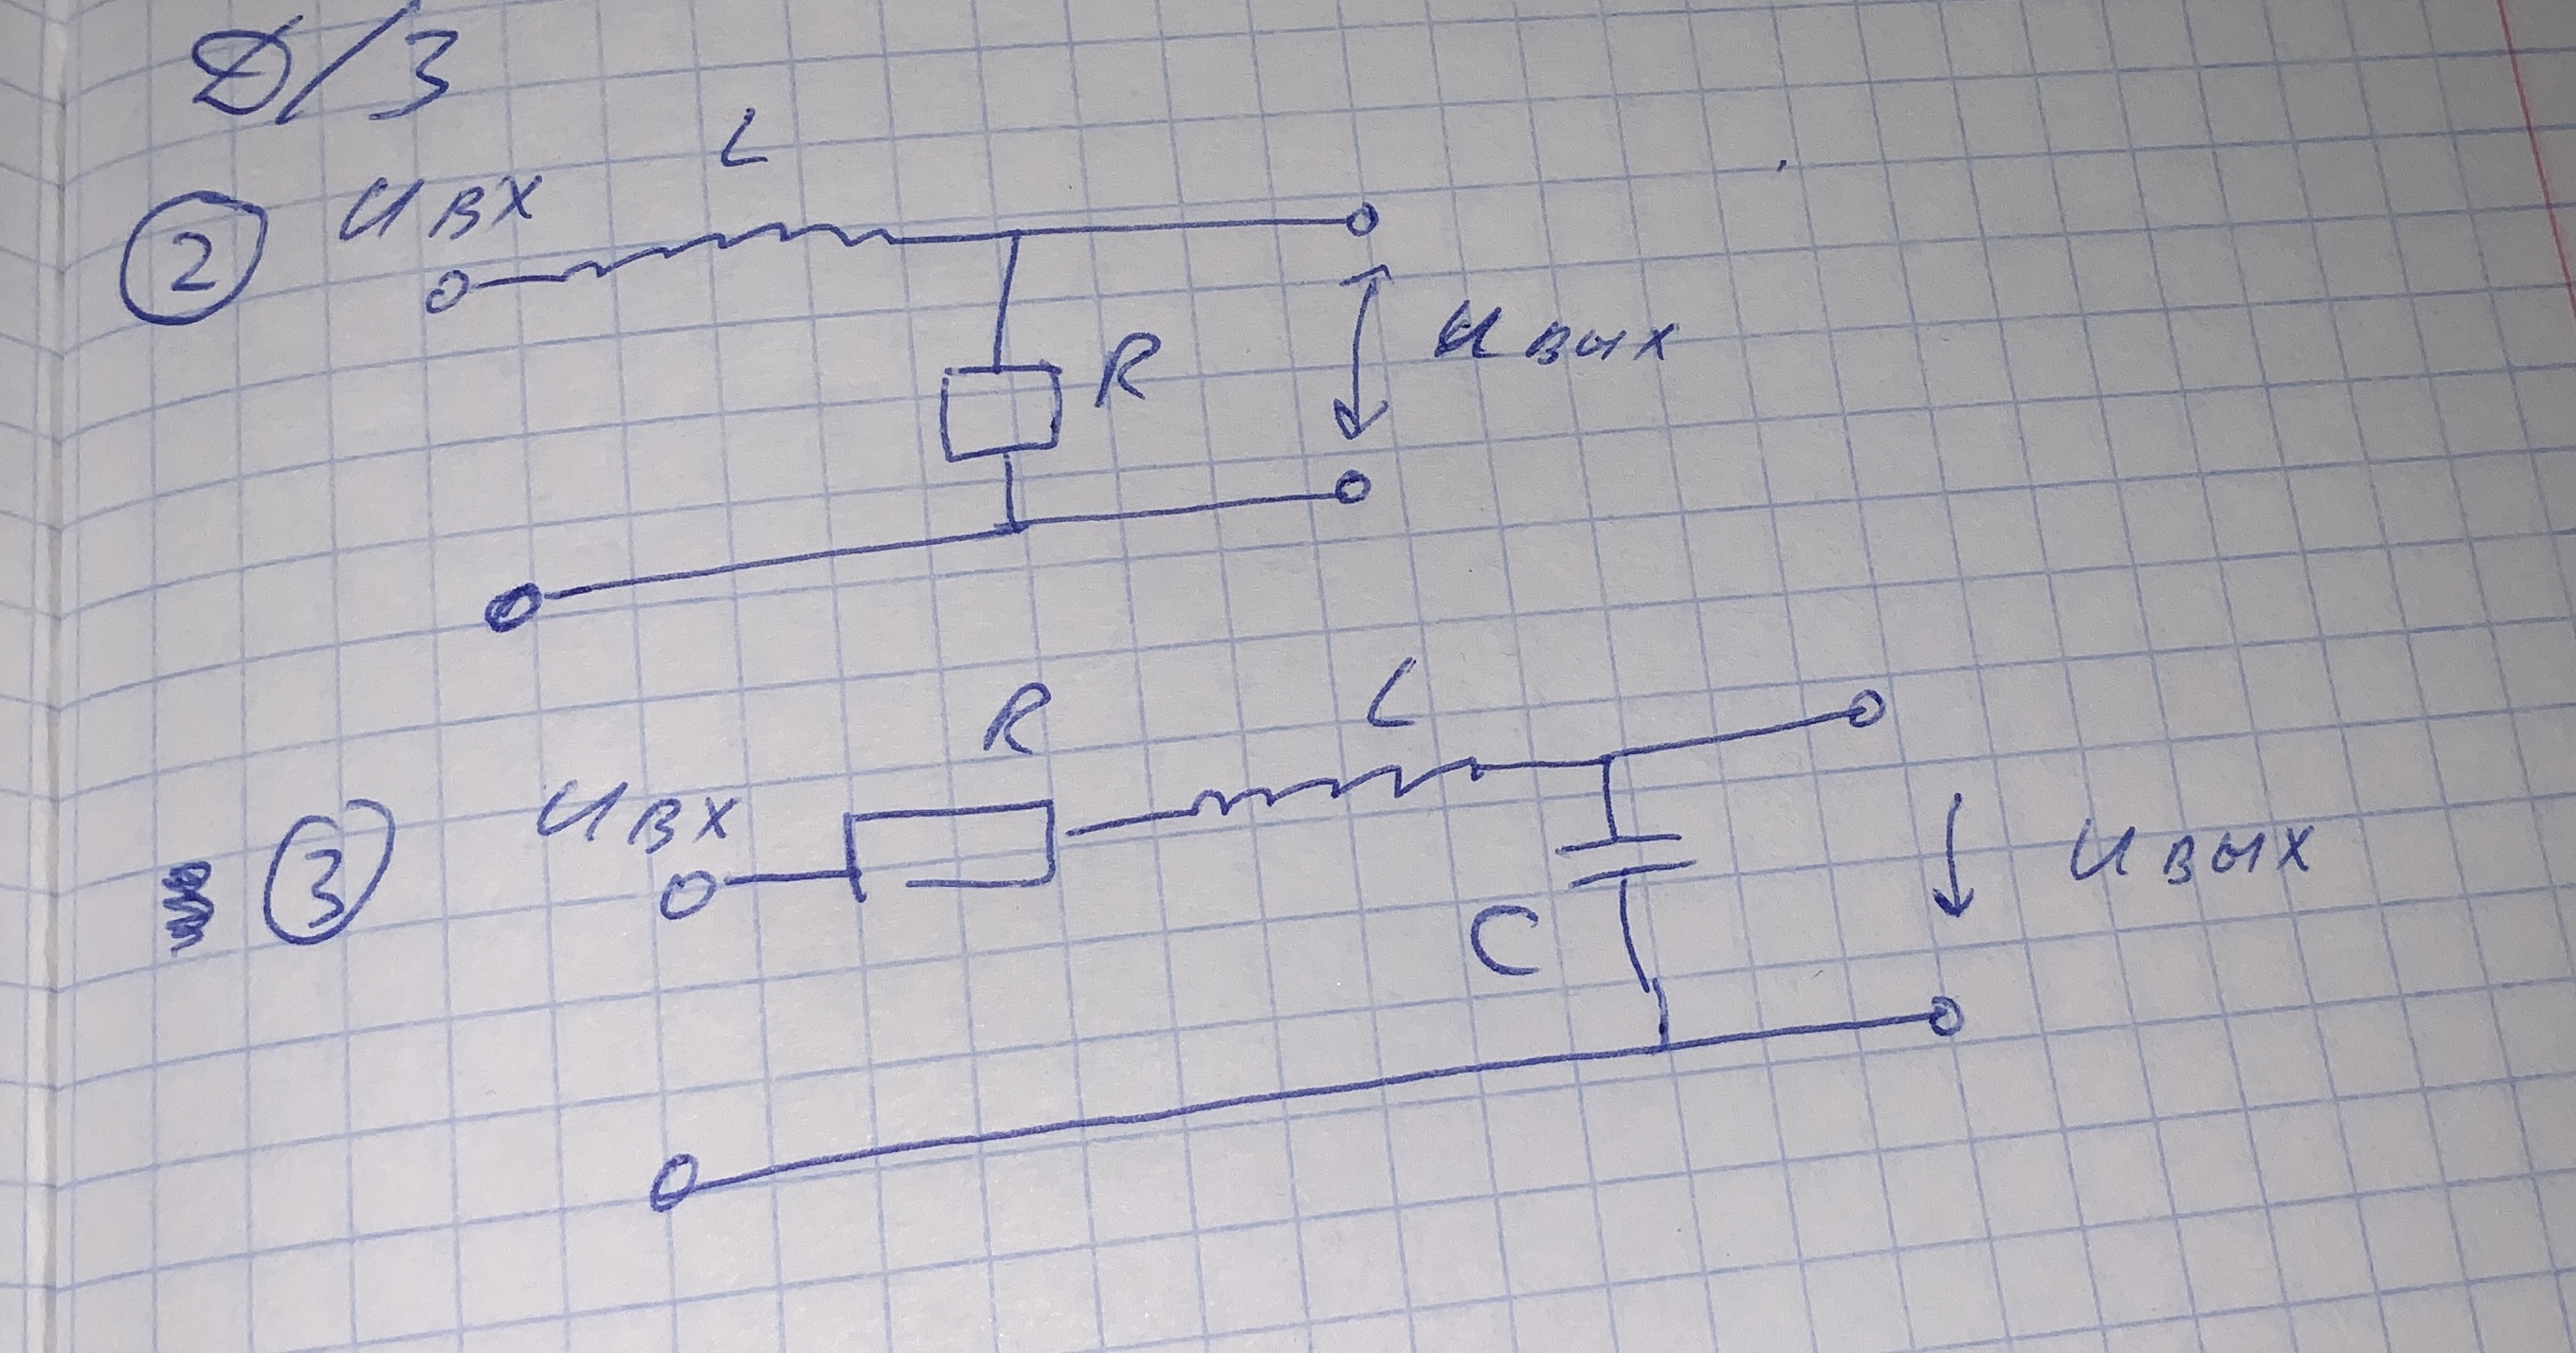 Д/З
L
② Uвх
R Uвых
R L
③ Uвх
C Uвых